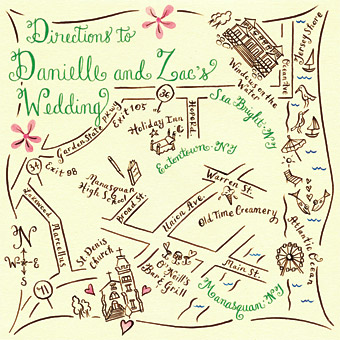 Directions to
Danielle and Zac's
Wedding
Jersey Shore
Ocean Ave.
Windows on the
Water
Sea Bright • NJ
36
Garden State Pkwy
Exit 105
Holiday Inn
Hope Rd.
Eatontown • NJ
34
Exit 98
Manasquan
High School
Broad St.
Warren St.
Union Ave.
Old Time Creamery
Atlantic
Ocean
Marcellus
St. Denis
Church
O'Neill's
Bar & Grill
Main St.
Manasquan • NJ
N
W
E
S
71